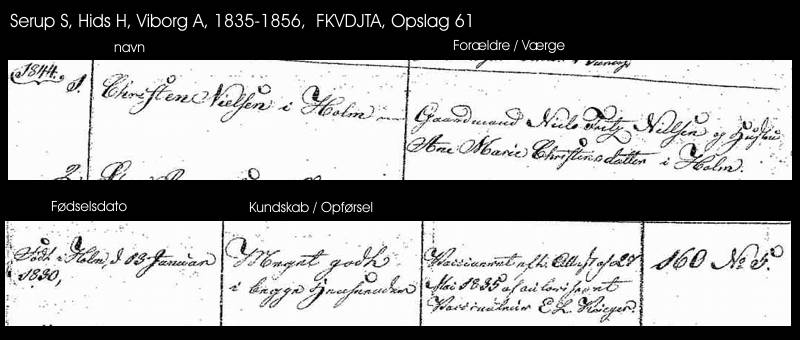 Serup S, Hids H, Viborg A, 1835-1856, FKVDJTA, Opslag 61
navn
Forældre / Værge
1844.
1.
Christen Nielsen i Holm
Gaardmand Niels Nielsen og Hustru
Ane Marie Christensdatter i Holm.
2.
Fødselsdato
Kundskab / Opførsel
Født i Holm, d 13 Januar
1830,
Meget godt
i begge Henseender
Vaccineret efter Attest af 27
Mai 1835 af autoriseret
Vaccinateur E. L. Krieger.
160 No 5.